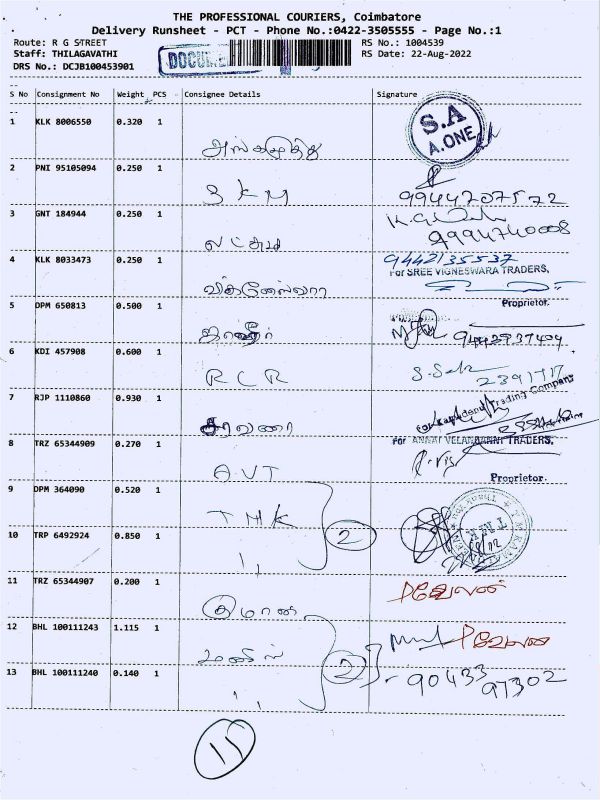 THE PROFESSIONAL COURIERS, Coimbatore
Delivery Runsheet - PCT - Phone No.:0422-3505555 - Page No.:1
Route: R G STREET RS No.: 1004539
Staff: THILAGAVATHI RS Date: 22-Aug-2022
DRS No.: DCJB100453901
S No Consignment No Weight PCS Consignee Details Signature
1 KLK 8006550 0.320 1 S.A A.ONE
2 PNI 95105094 0.250 1 SKM 9944207572
3 GNT 184944 0.250 1 லட்சுமி 9994740008
4 KLK 8033473 0.250 1 விக்னேஸ்வரா 9442135537
For SREE VIGNESWARA TRADERS,
Proprietor.
5 DPM 650813 0.500 1
6 KDI 457908 0.600 1 RCR 2391717
7 RJP 1110860 0.930 1 சரவணா Trading Company
8 TRZ 65344909 0.270 1 AVT For ANNAI VELANKANNI TRADERS,
Proprietor.
9 DPM 364090 0.520 1 TMK
10 TRP 6492924 0.850 1 ,, 2 TMK
11 TRZ 65344907 0.200 1
12 BHL 100111243 1.115 1
13 BHL 100111240 0.140 1 ,, 2 90433 97302
11